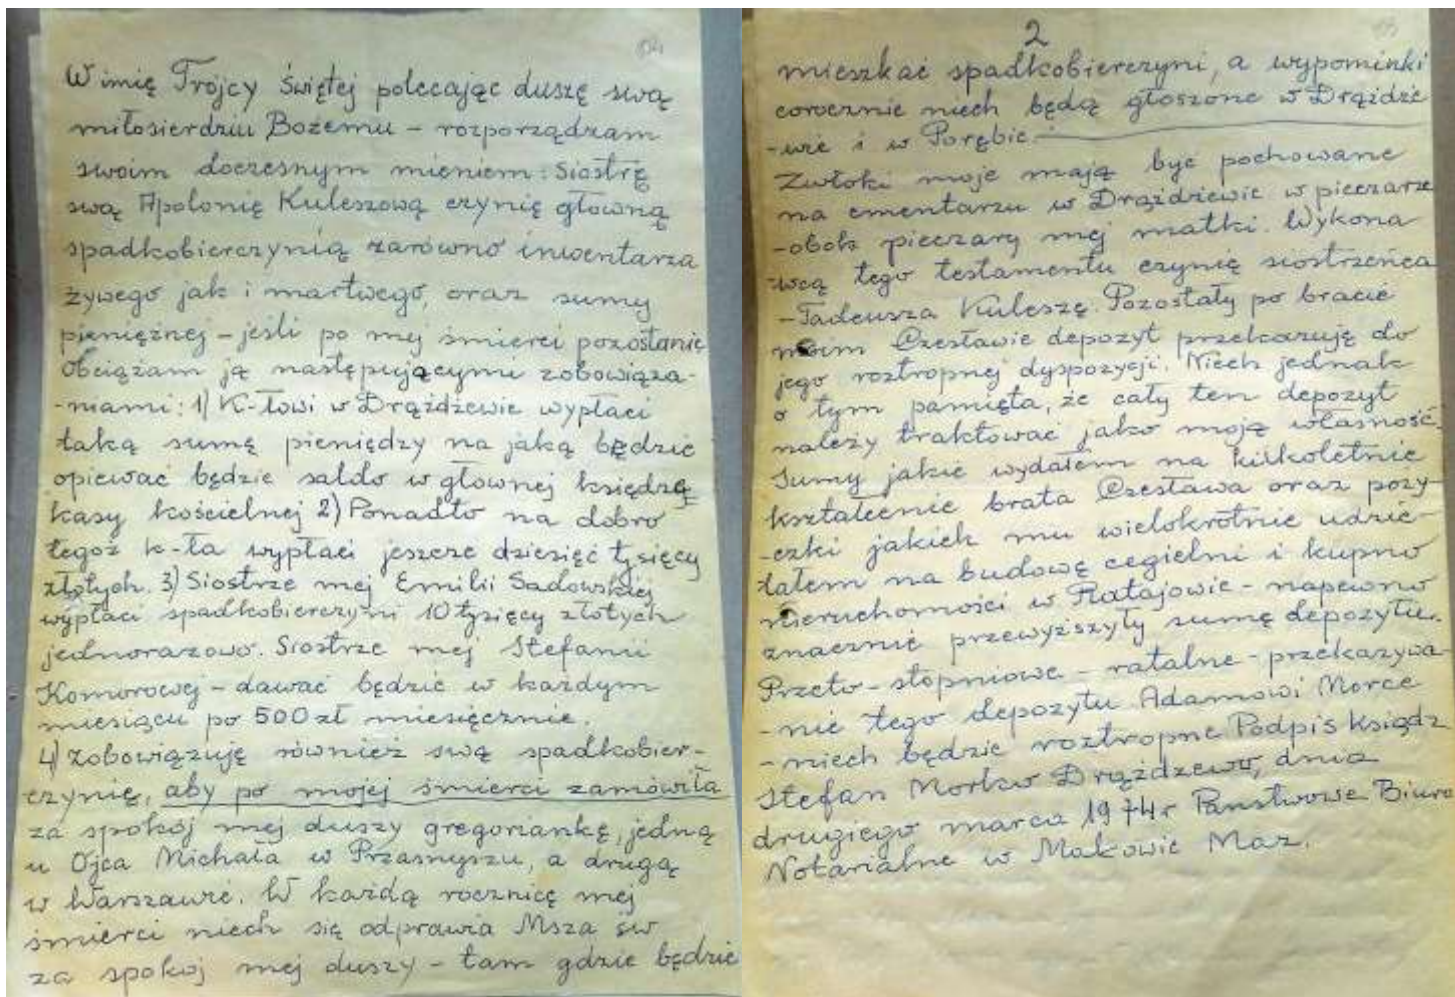 W imię Trójcy Świętej polecając duszę swą
miłosierdziu Bożemu – rozporządzam
swoim doczesnym mieniem: Siostrę
swą Apolonię Kuleszową czynię główną
spadkobierczynią zarówno inwentarza
żywego jak i martwego, oraz sumy
pieniężnej – jeśli po mej śmierci pozostanie
Obciążam ją następującymi zobowiąza-
-niami: 1) K-łowi w Drążdżewie wypłaci
taką sumę pieniędzy na jaką będzie
opiewać będzie saldo w głównej księdze
kasy kościelnej 2) Ponadto na dobro
tegoż k-ła wypłaci jeszcze dziesięć tysięcy
złotych. 3) Siostrze mej Emilii Sadowskiej
wypłaci spadkobierczyni 10 tysięcy złotych
jednorazowo. Siostrze mej Stefanii
Komorowej – dawać będzie w każdym
miesiącu po 500 zł miesięcznie.
4) Zobowiązuję również swą spadkobier-
czynię, aby po mojej śmierci zamówiła
za spokój mej duszy gregoriankę, jedną
u Ojca Michała w Przasnyszu, a drugą
w Warszawie. W każdą rocznicę mej
śmierci niech się odprawia Msza św
za spokój mej duszy – tam gdzie będzie
2
mieszkać spadkobierczyni, a wypominki
corocznie niech będą głoszone w Drążdże
-wie i w Porębie. –
Zwłoki moje mają być pochowane
na cmentarzu w Drążdżewie w pieczarze
-obok pieczary mej matki. Wykona
-wcą tego testamentu czynię siostrzeńca
-Tadeusza Kuleszę. Pozostały po bracie
moim Czesławie depozyt przekazuję do
jego roztropnej dyspozycji. Niech jednak
o tym pamięta, że cały ten depozyt
należy traktować jako moją własność.
Sumy jakie wydałem na kilkoletnie
kształcenie brata Czesława oraz poży-
-czki jakich mu wielokrotnie udzie-
łałem na budowę cegielni i kupno
nieruchomości w Ratajowie – napewno
znacznie przewyższyły sumę depozytu.
Przeto – stopniowe – ratalne – przekazywa-
-nie tego depozytu Adamowi Morce
-niech będzie roztropne Podpis Ksiądz
Stefan Morko Drążdżewo, dnia
drugiego marca 1974 r Państwowe Biuro
Notarialne w Makowie Maz.